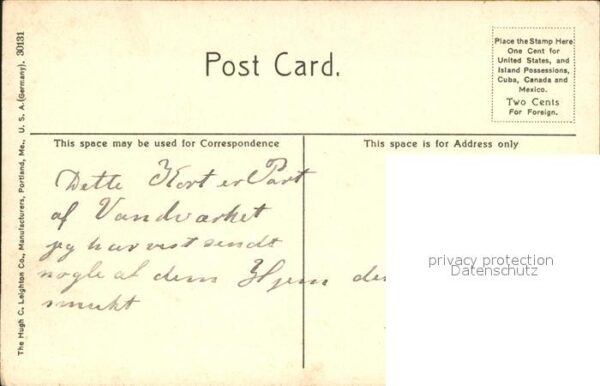 Post Card.
Place the Stamp Here
One Cent for
United States, and
Island Possessions,
Cuba, Canada and
Mexico.
Two Cents
For Foreign.
The Hugh C. Leighton Co., Manufacturers, Portland, Me., U. S. A. (Germany). 30131
This space may be used for Correspondence
This space is for Address only
Dette Kort er Part
af Vandværket
jeg har vist sendt
nogle af dem Hjem de
smukt
privacy protection
Datenschutz